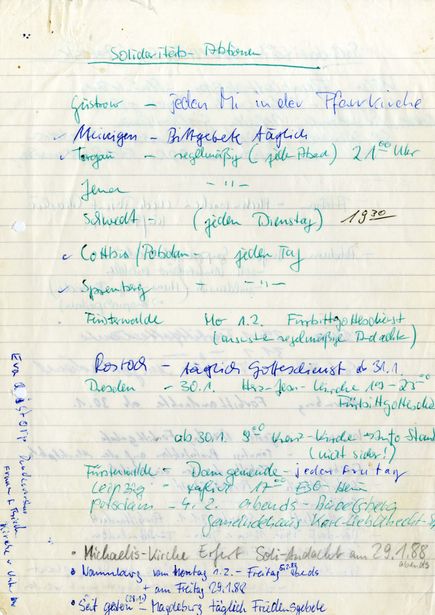 Solidaritäts-Aktionen
Güstrow – jeden Mi in der Pfarrkirche
✓ Meinigen – Bittgebete täglich
✓ Torgau – regelmäßig (jede Abend) 21⁰⁰ Uhr
Jena – " –
Schwedt – (jeden Dienstag) 19³⁰
✓ Cottbus/Potsdam – jeden Tag
✓ Spremberg – " –
Fürstenwalde Mo 1.2. Fürbittgottesdienst
(ansonsten regelmäßige Andachten)
Rostock – täglich Gottesdienst ab 31.1.
Dresden – 30.1. Herz-Jesu-Kirche 19–23⁰⁰
Fürbittgottesdienst
ab 30.1. 9⁰⁰ Kreuz-Kirche
(nicht sicher!)
Fürstenwalde – Domgemeinde – jeden Freitag
Leipzig – täglich 17⁰⁰ ESG-Heim
Potsdam – 4.2. abends – Babelsberg
Gemeindehaus Karl-Liebknecht-S
• Michaelis-Kirche Erfurt Soli-Andacht am 29.1.88
abends
• Naumburg vom Montag 1.2. – Freitag 5.2.88 abends
+ am Freitag 29.1.88
• Seit gestern (28.1.88) – Magdeburg täglich Friedensgebete
Eva Quistorp
Frauen f. Frieden
Kirche v. Unten